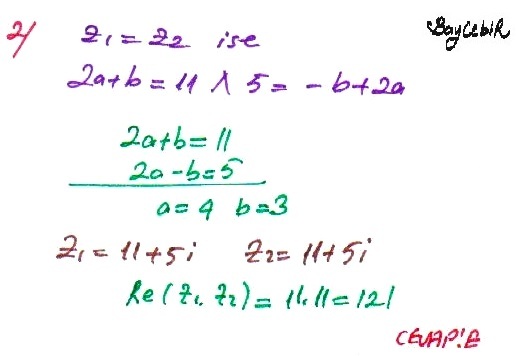 2/ z₁ = z₂ ise
BAYCEBİR
2a+b = 11 ∧ 5 = -b+2a
2a+b = 11
2a-b = 5
a = 4 b = 3
z₁ = 11+5i z₂ = 11+5i
Re(z₁.z₂) = 11.11 = 121
CEVAP:E